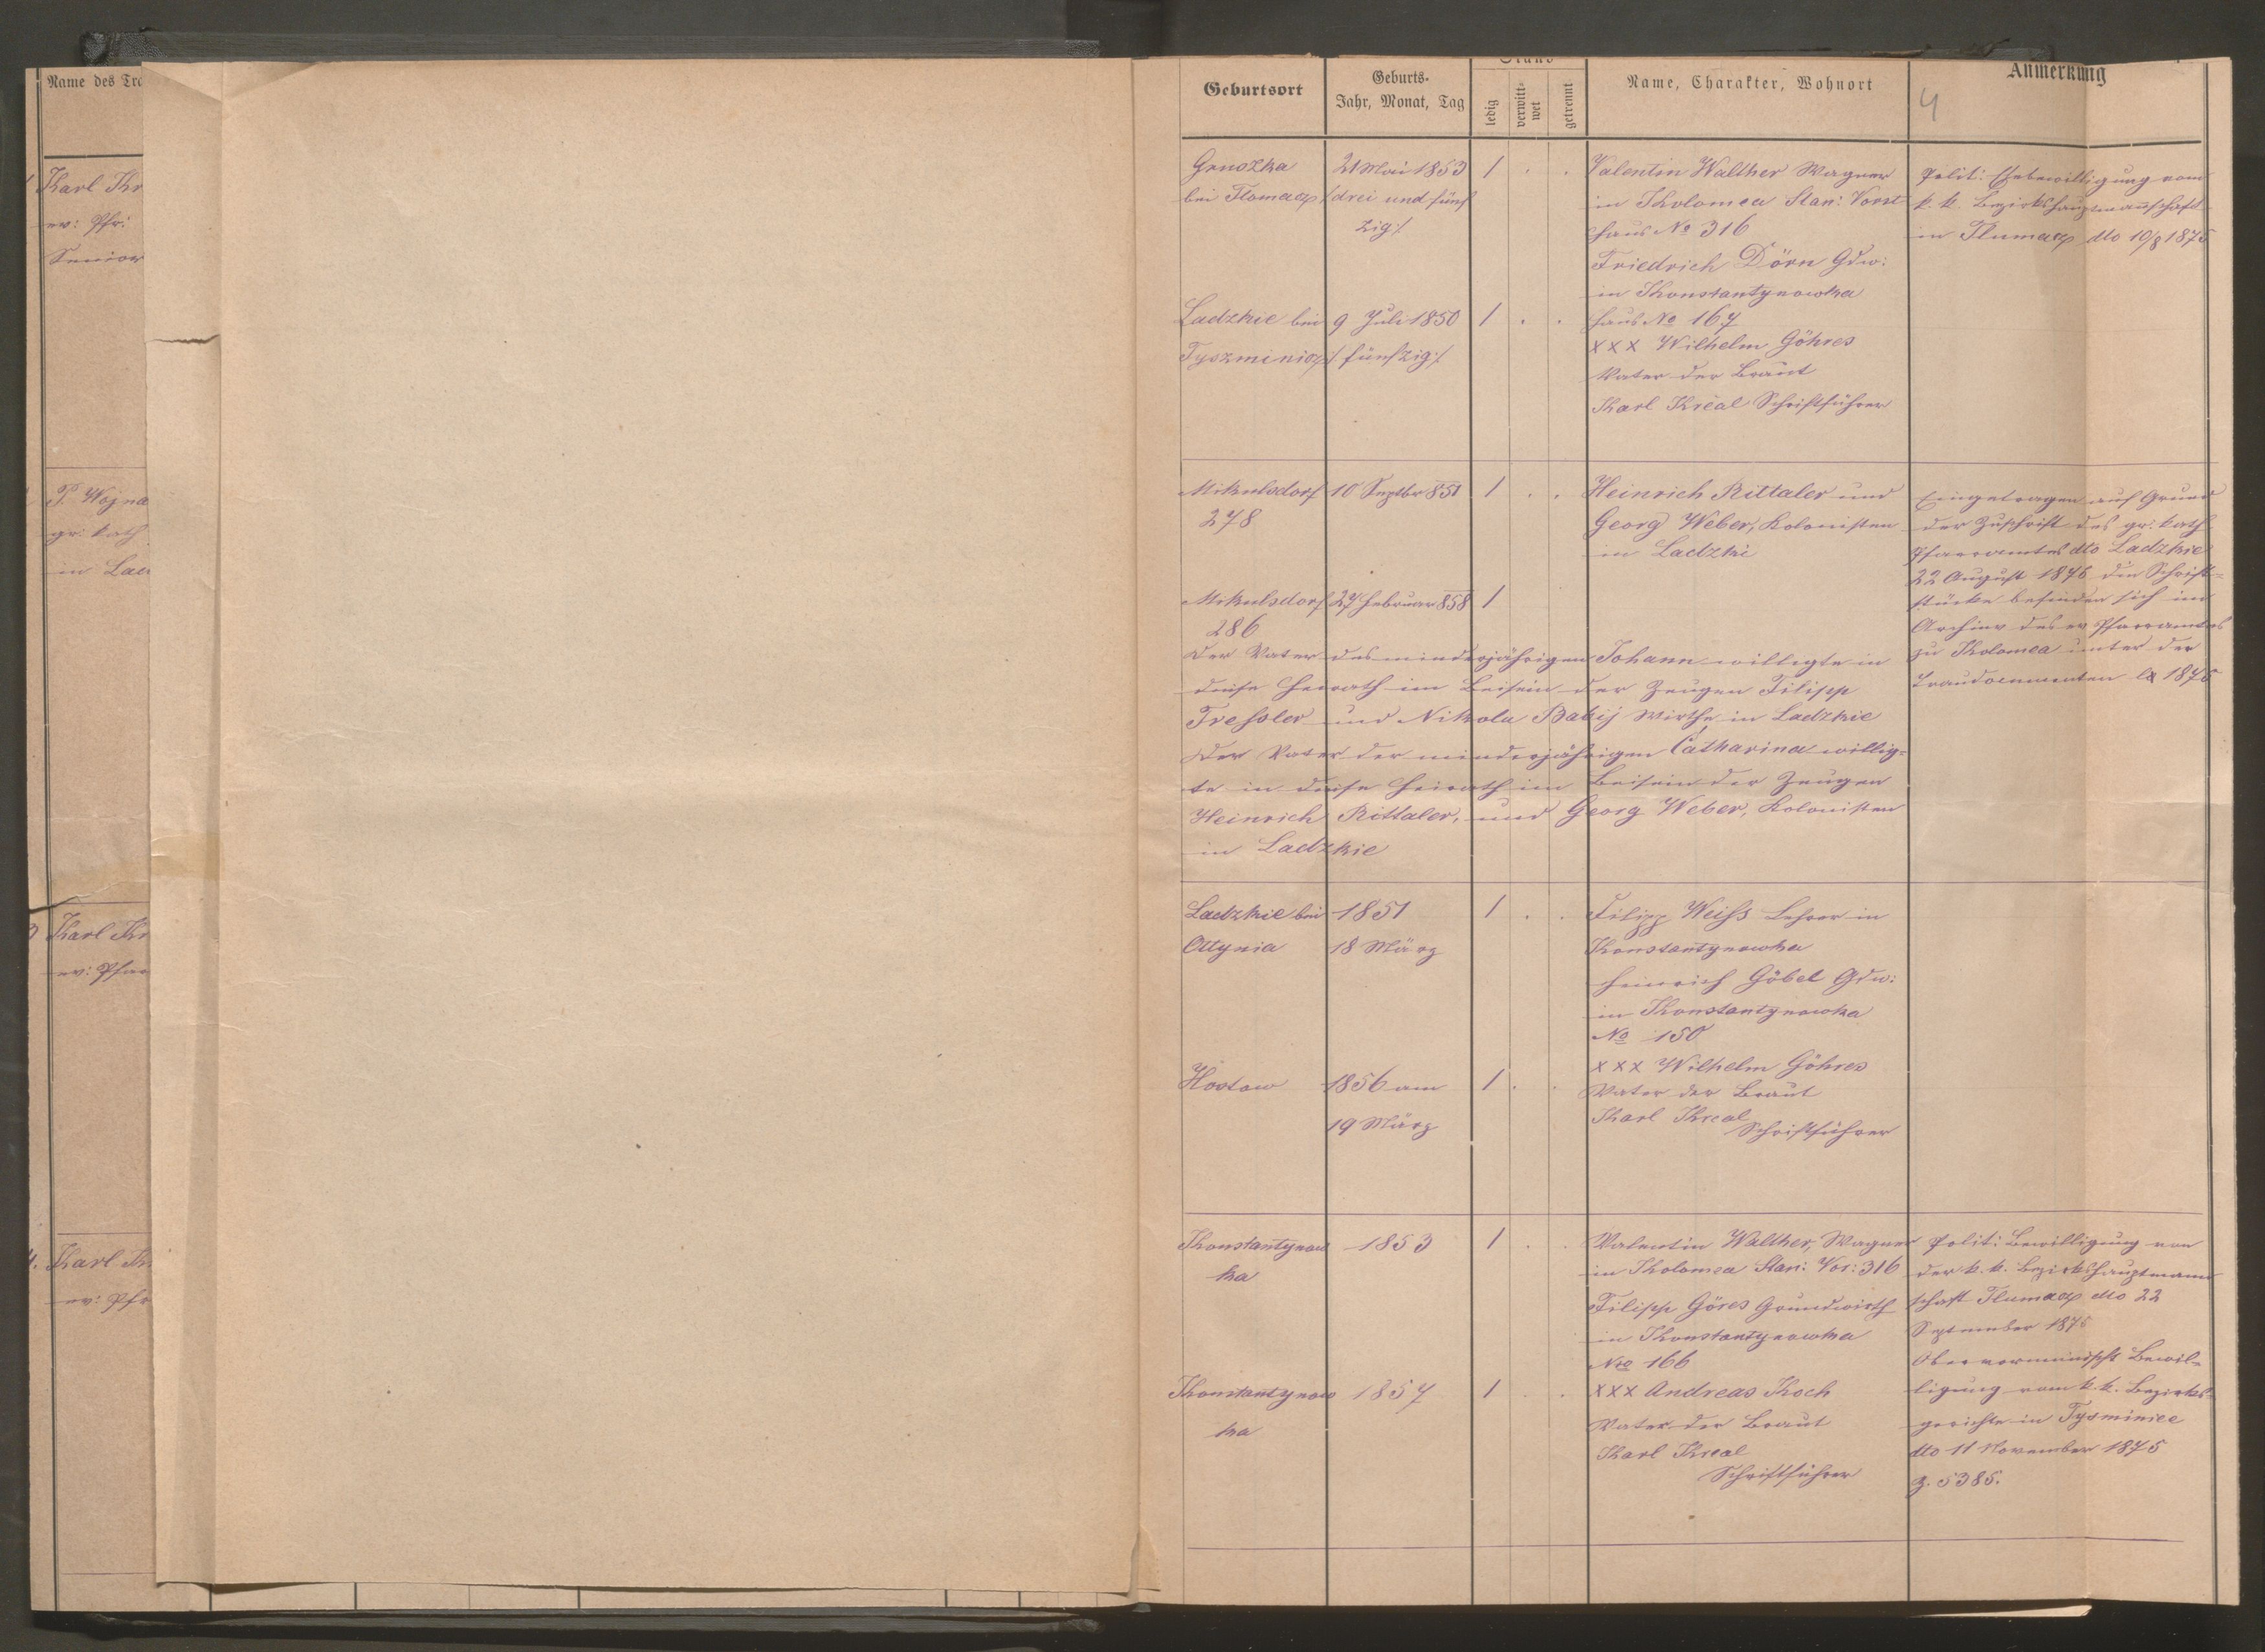 Name des Tra
Karl Kr
ev: Pfr:
Senior
P. Wojna
gr: kath
in Lad
3 Karl Kr
ev: Pfar
4. Karl Kr
ev: Pfr
Geburtsort
Geburts-
Jahr, Monat, Tag
Stand
ledig
verwitt-
wet
getrennt
Name, Charakter, Wohnort
Anmerkung
4
Grnozka
bei Tlomacz
21 Mai 1853
/:drei und fünf
zig:/
1 . .
Valentin Walther Wagner
in Kolomea Stan: Vorst
Haus No 316
Friedrich Dörn Gdw:
in Konstantynowka
Haus No 167
XXX Wilhelm Göhres
Vater der Braut
Karl Kreal Schriftführer
Polit: Ehebewilligung vom
k. k. Bezirkshauptmannschaft
in Tlumacz dto 10/8 1875
Ladzkie bei
Tyszminicz
9 Juli 1850
/:fünfzig:/
1 . .
Mikulsdorf
278
10 Septbr 851
1 . .
Heinrich Rittaler und
Georg Weber, Kolonisten
in Ladzki
Eingetragen auf Grund
der Zuschrift des gr: kath
Pfarramtes dto Ladzkie
22 August 1876 die Schrift=
stücke befinden sich im
Archiv des ev Pfarramtes
zu Kolomea unter den
Traudocumenten 1875
Mikulsdorf
286
27 Februar 858
1
Der Vater des minderjährigen Johann willigte in
diese Heirath im Beisein der Zeugen Filipp
Tressler und Nikola Babij Wirthe in Ladzkie
Der Vater der minderjährigen Catharina willig=
te in diese Heirath im Beisein der Zeugen
Heinrich Rittaler, und Georg Weber, Kolonisten
in Ladzkie
Ladzkie bei
Ottynia
1851
18 März
1 . .
Filipp Weiss Lehrer in
Konstantynowka
Heinrich Göbel Gdw:
in Konstantynowka
No 150
XXX Wilhelm Göhres
Vater der Braut
Karl Kreal
Schriftführer
Hostow
1856 am
19 März
1 . .
Konstantynow
ka
1853
1 . .
Valentin Walther, Wagner
in Kolomea Stan: Vor: 316
Filipp Göres Grundwirth
in Konstantynowka
Nro 166
XXX Andreas Koch
Vater der Braut
Karl Kreal
Schriftführer
Polit: Bewilligung von
der k. k. Bezirkshauptmann
schaft Tlumacz dto 22
September 1875
Bewil=
ligung vom k. k. Bezirks=
gerichte in Tysminiec
dto 11 November 1875
Z. 5385.
Konstantynow
ka
1857
1 . .